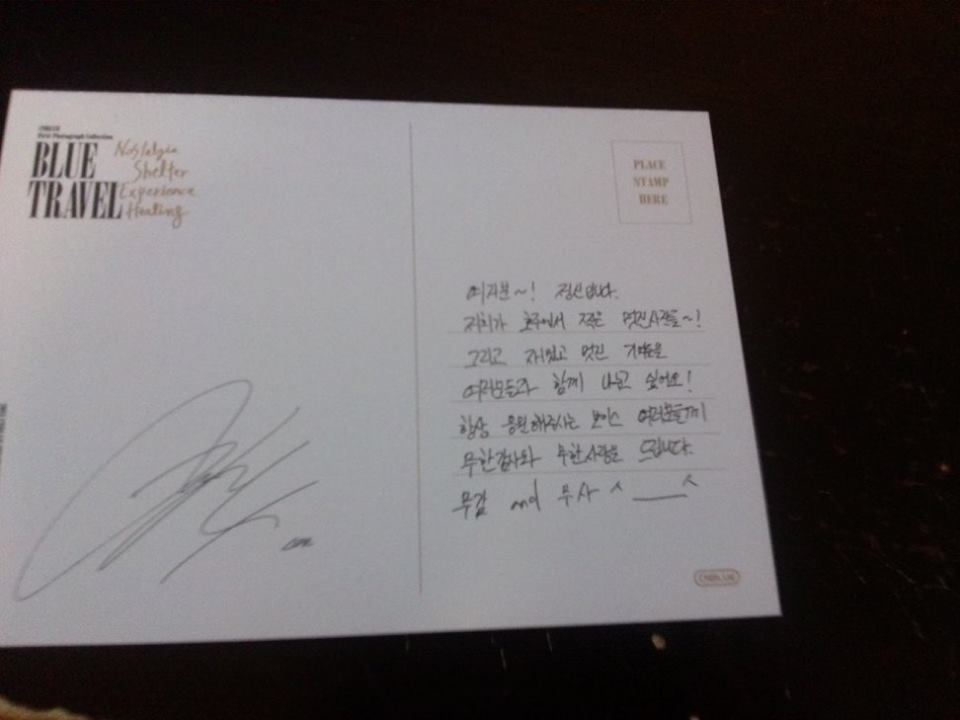 CNBLUE
First Photograph Collection
BLUE
TRAVEL
Nostalgia
Shelter
Experience
Healing
PLACE
STAMP
HERE
여러분~! 정신입니다.
저희가 호주에서 찍은 멋진사진들~!
그리고 재밌고 멋진 기억들을
여러분들과 함께 나누고 싶어요!
항상 응원해주시는 보이스 여러분들께
무한감사와 무한사랑을 드립니다.
무감 and 무사 ^____^
CNBLUE